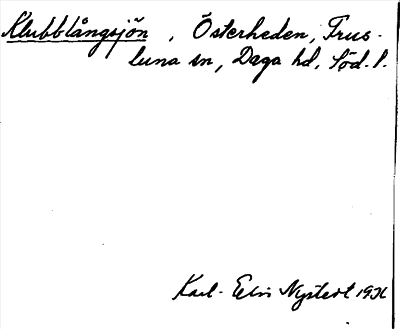 Klubblångsjön, Österheden, Frus-
tuna sn, Daga hd, Söd. l.
Karl-Elis Nystedt 1936